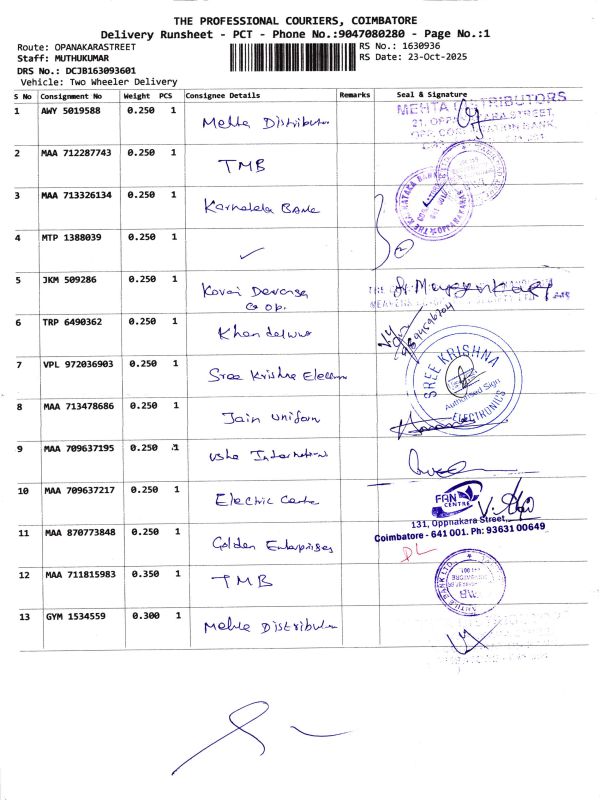 THE PROFESSIONAL COURIERS, COIMBATORE
Delivery Runsheet - PCT - Phone No.:9047080280 - Page No.:1
Route: OPANAKARASTREET
RS No.: 1630936
Staff: MUTHUKUMAR
RS Date: 23-Oct-2025
DRS No.: DCJB163093601
Vehicle: Two Wheeler Delivery
S No Consignment No Weight PCS Consignee Details Remarks Seal & Signature
1 AWY 5019588 0.250 1 Mehta Distributor
MEHTA DISTRIBUTORS
2 MAA 712287743 0.250 1 TMB
3 MAA 713326134 0.250 1 Karnataka Bank
4 MTP 1388039 0.250 1 ✓
5 JKM 509286 0.250 1 Kovai Devanga
Co op.
6 TRP 6490362 0.250 1 Khandelwal
7 VPL 972036903 0.250 1 Sree Krishna Electron
SREE KRISHNA
Authorised Sign
ELECTRONICS
8 MAA 713478686 0.250 1 Jain Uniform
9 MAA 709637195 0.250 1 Usha International
10 MAA 709637217 0.250 1 Electric Centre
FAN
CENTRE
131, Oppnakara Street,
Coimbatore - 641 001. Ph: 93631 00649
11 MAA 870773848 0.250 1 Golden Enterprises
DL
12 MAA 711815983 0.350 1 TMB
13 GYM 1534559 0.300 1 Mehta Distributor